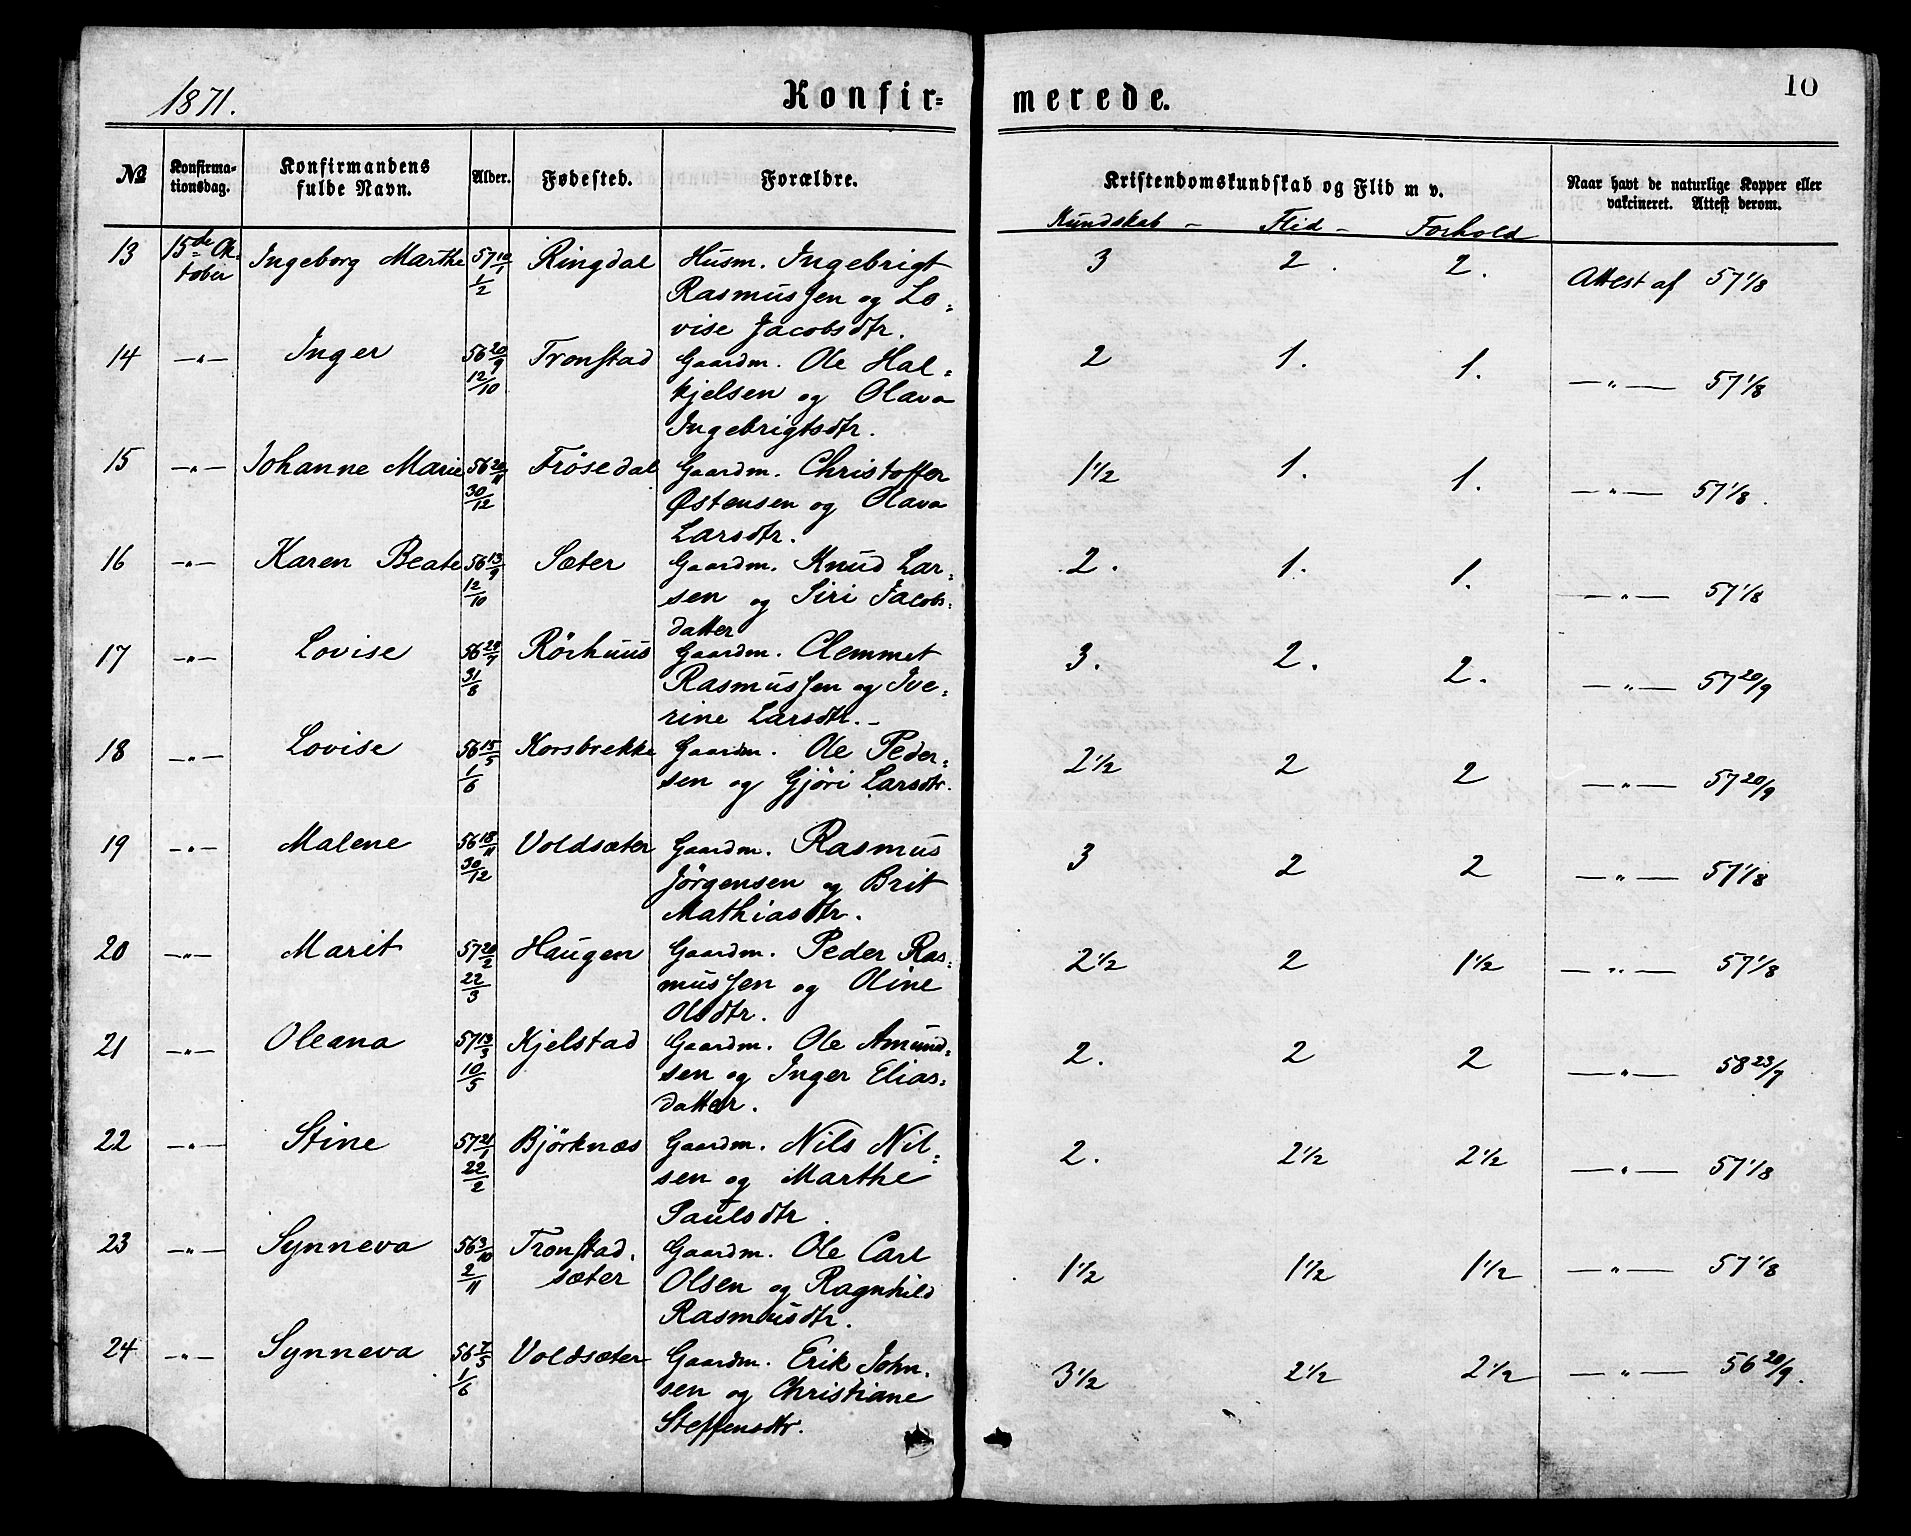 1871. Konfirmerede. 10
№ Konfirmationsdag. Konfirmandens fulde Navn. Alder. Fødested. Forældre. Kristendomskundskab og Flid m v. Naar havt de naturlige Kopper eller vakcineret. Attest derom.
Kundskab - Flid - Forhold
13 15de Ok- Ingeborg Marthe 57 10/1 Ringdal Husm. Ingebrigt 3 2. 2. Attest af 57 1/8
tober 1/2 Rasmussen og Lo-
vise Jacobsdtr.
14 -"- Inger 56 20/9 Tronstad Gaardm. Ole Hal- 2 1. 1. -"- 57 1/8
12/10 kjelsen og Olava
Ingebrigtsdtr.
15 -"- Johanne Marie 56 20/11 Frösedal Gaardm. Christoffer 1 1/2 1. 1. -"- 57 1/8.
30/12 Østensen og Olava
Larsdtr.
16 -"- Karen Beate 56 13/9 Sæter Gaardm. Knud Lar- 2. 1. 1. -"- 57 1/8
12/10 sen og Siri Jacobs-
datter
17 -"- Lovise 56 Rörhuus Gaardm. Clemmet 3. 2. 2. -"- 57 20/9
31/8 Rasmussen og Ive-
rine Larsdtr. -
18 -"- Lovise 56 15/5 Korsbrekke Gaardm. Ole Peder- 2 1/2 2 2 -"- 57 20/9
1/6 sen og Gjöri Larsdtr.
19 -"- Malene 56 18/11 Voldsæter Gaardm. Rasmus 3 2 2 -"- 57 1/8
30/12 Jörgensen og Brit
Mathiasdtr.
20 -"- Marit 57 20/2 Haugen Gaardm. Peder Ras- 2 1/2 2 1 1/2 -"- 57 1/8
22/3 mussen og Oline
Olsdtr.
21 -"- Oleana 57 13/3 Kjelstad Gaardm. Ole Amund- 2. 2 2 -"- 58 23/9
10/5 sen og Inger Elias-
datter.
22 -"- Stine 57 21/1 Björknæs Gaardm. Nils Nil- 2. 2 1/2 2 1/2 -"- 57 1/8
22/2 sen og Marthe
Paulsdtr.
23 -"- Synneva 56 3/10 Tronstad- Gaardm. Ole Carl 1 1/2 1 1/2 1 1/2 -"- 57 1/8
2/11 sæter Olsen og Ragnhild
Rasmusdtr.
24 -"- Synneva 56 7/5 Voldsæter Gaardm. Erik John- 3 1/2 2 1/2 2 1/2 -"- 56 20/9.
1/6 sen og Christiane
Steffensdtr.